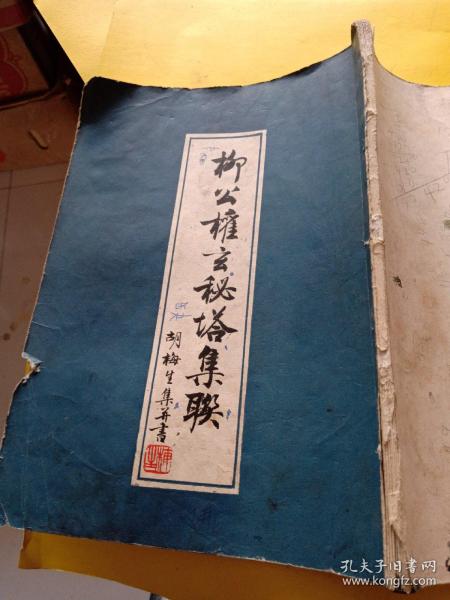 柳公權玄秘塔集聯
胡梅生集并書
孔夫子旧书网
www.kongfz.com